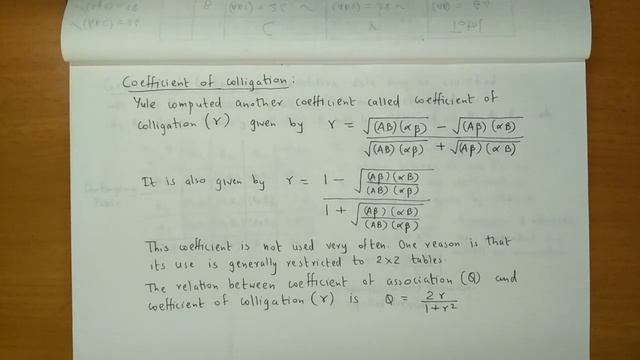 Coefficient of colligation:
Yule computed another coefficient called coefficient of
colligation (r) given by r = √(AB)(αβ) − √(Aβ)(αB) / √(AB)(αβ) + √(Aβ)(αB)
It is also given by r = 1 − √(Aβ)(αB)/(AB)(αβ) / 1 + √(Aβ)(αB)/(AB)(αβ)
This coefficient is not used very often. One reason is that
its use is generally restricted to 2×2 tables.
The relation between coefficient of association (Q) and
coefficient of colligation (r) is Q = 2r / 1+r²